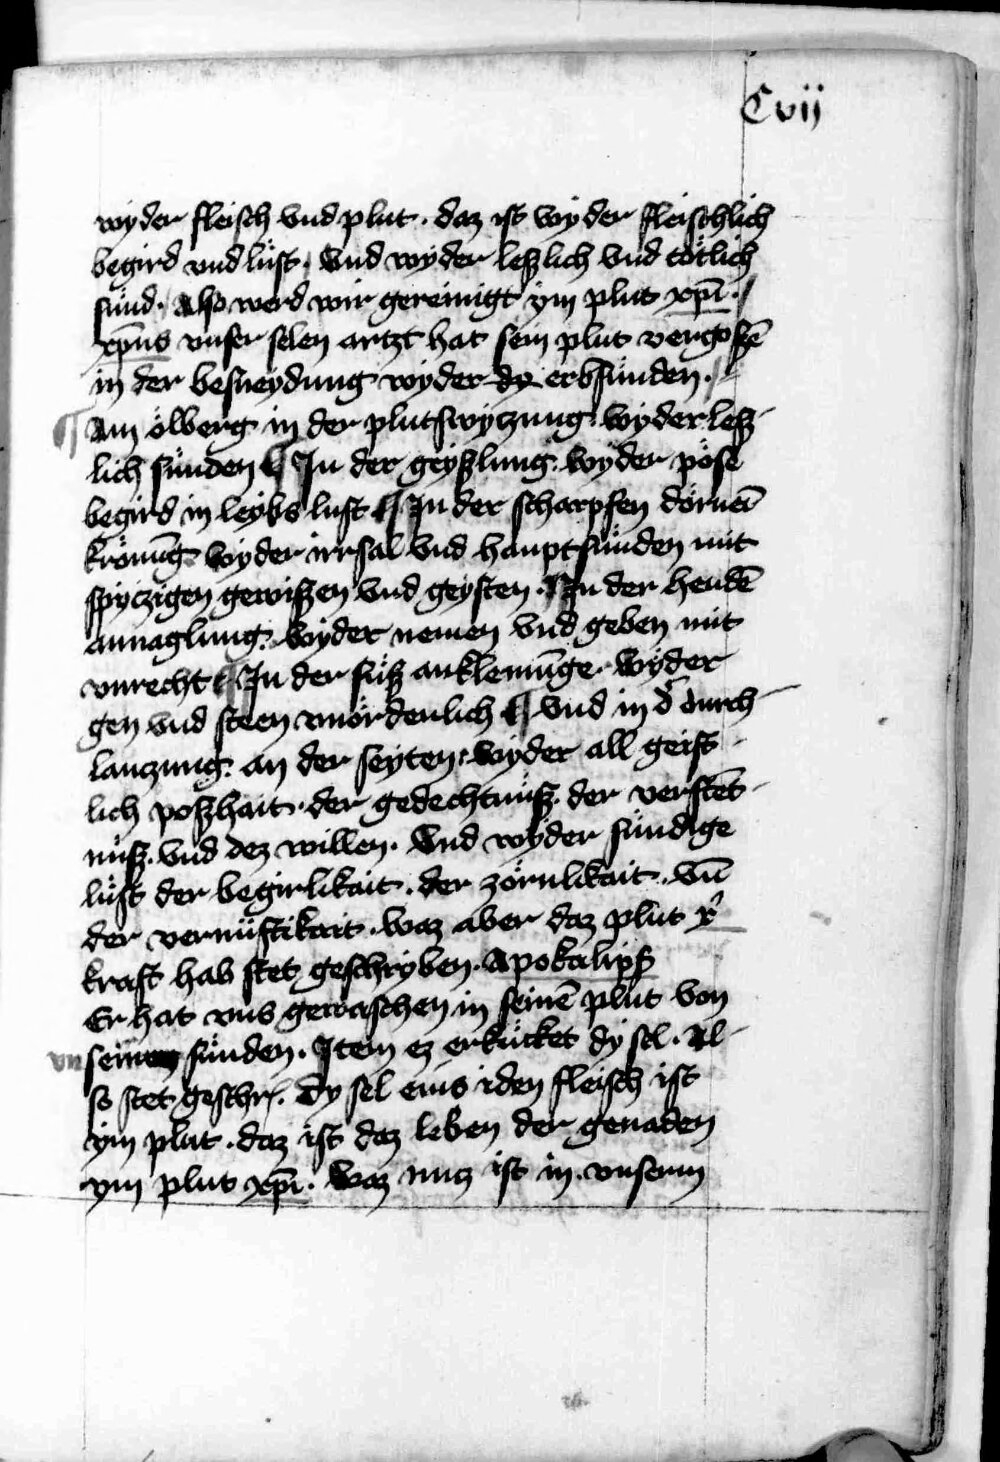 Cvij
wyder fleisch vnd plut . daz ist wyder fleischlich
begird vnd lüst . Vnd wyder leßlich vnd tötlich
sünd . Also werd wir gereinigt ym plut xp̄i .
xp̄us vnser selen artzt hat sein plut vergoßē
in der besneydung wyder dy erbsünden .
¶ Am ölberg in der plutswyczung . wyder leß-
lich sünden ¶ In der geyßlung . wyder pöse
begird in leybs lust ¶ In der scharpfen dörneī
krönūg wyder irrsal vnd hauptsünden mit
spyczigen gewißen vnd geysten . ¶ In der hendē
annaglung . wyder nemen vnd geben mit
vnrecht ¶ In der füß anklemūge . wyder
gen vnd steen vnördenlich ¶ vnd in d̄ durch-
lanczung . an der seyten . wyder all geist-
lich poßhait . der gedechtnüß . der verstet-
nüß . vnd dez willen . Vnd wyder sündige
lüst der begirlikait . der zörnlikait . vn̄
der vernüftikait . waz aber daz plut x̄
kraft hab stet geschryben . Apokalipß
Er hat vns gewaschen in seinē plut von
vn seinen sünden . Item ez erkücket dy sel . Al-
so stet geschr . Dy sel eins iden fleisch ist
ym plut . daz ist daz leben der genaden
ym plut xp̄i . Waz nucz ist in vnserm